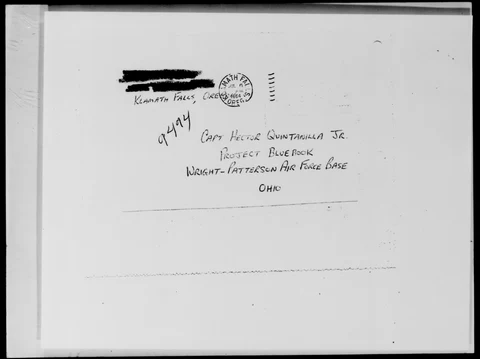 KLAMATH FALLS, ORE
KLAMATH FALLS
OREG
9494
CAPT HECTOR QUINTANILLA JR.
PROJECT BLUEBOOK
WRIGHT-PATTERSON AIR FORCE BASE
OHIO